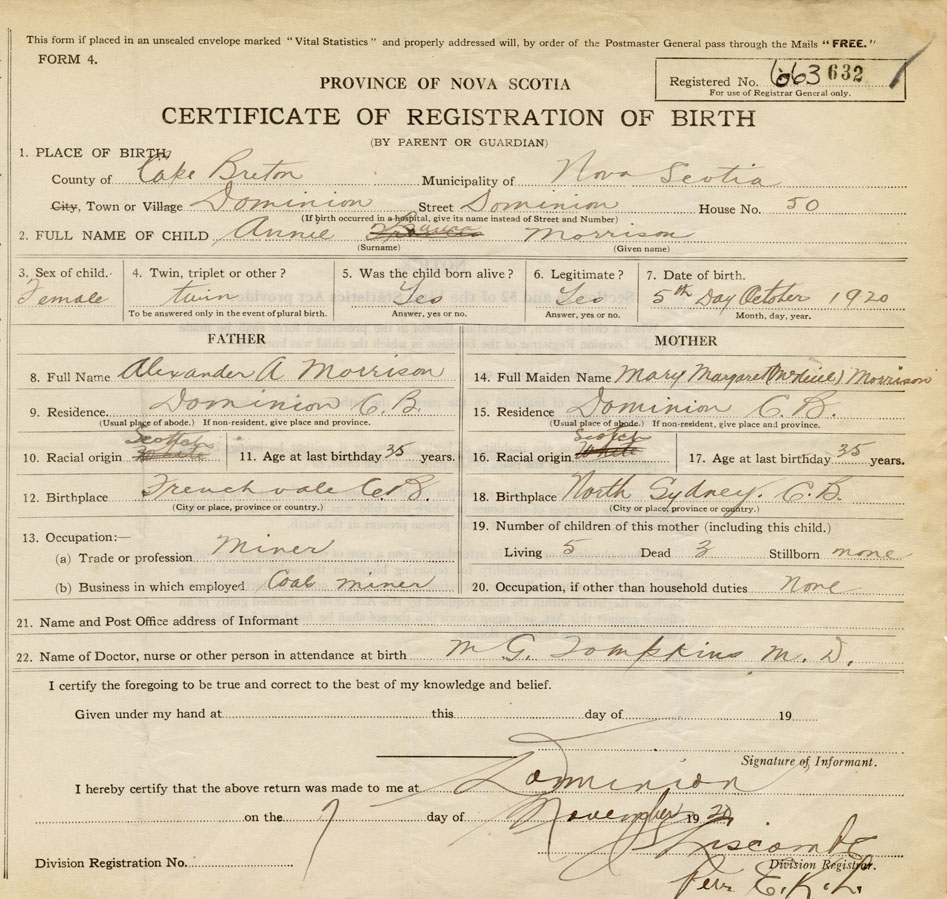 This form if placed in an unsealed envelope marked "Vital Statistics" and properly addressed will, by order of the Postmaster General pass through the Mails "FREE."
FORM 4.
Registered No. 663 632
For use of Registrar General only.
PROVINCE OF NOVA SCOTIA
CERTIFICATE OF REGISTRATION OF BIRTH
(BY PARENT OR GUARDIAN)
1. PLACE OF BIRTH,
County of Cape Breton Municipality of Nova Scotia
City, Town or Village Dominion Street Dominion House No. 50
(If birth occurred in a hospital, give its name instead of Street and Number)
2. FULL NAME OF CHILD Annie Morrison
(Surname) (Given name)
3. Sex of child. 4. Twin, triplet or other? 5. Was the child born alive? 6. Legitimate? 7. Date of birth.
Female twin Yes Yes 5th Day October 1920
To be answered only in the event of plural birth. Answer, yes or no. Answer, yes or no. Month, day, year.
FATHER MOTHER
8. Full Name Alexander A Morrison 14. Full Maiden Name Mary Margaret (McNeil) Morrison
9. Residence. Dominion C.B. 15. Residence Dominion C.B.
(Usual place of abode.) If non-resident, give place and province. (Usual place of abode.) If non-resident, give place and province.
Scotch Scotch
10. Racial origin White 11. Age at last birthday 35 years. 16. Racial origin White 17. Age at last birthday 35 years.
12. Birthplace Frenchvale C.B. 18. Birthplace North Sydney. C.B.
(City or place, province or country.) (City or place, province or country.)
13. Occupation:— 19. Number of children of this mother (including this child.)
(a) Trade or profession Miner Living 5 Dead 3 Stillborn none
(b) Business in which employed Coal miner 20. Occupation, if other than household duties None
21. Name and Post Office address of Informant
22. Name of Doctor, nurse or other person in attendance at birth M G. Tompkins M. D.
I certify the foregoing to be true and correct to the best of my knowledge and belief.
Given under my hand at this day of 19
Signature of Informant.
I hereby certify that the above return was made to me at Dominion
on the 7 day of November 19 20
Division Registrar.
Division Registration No.
Per E.K.L.